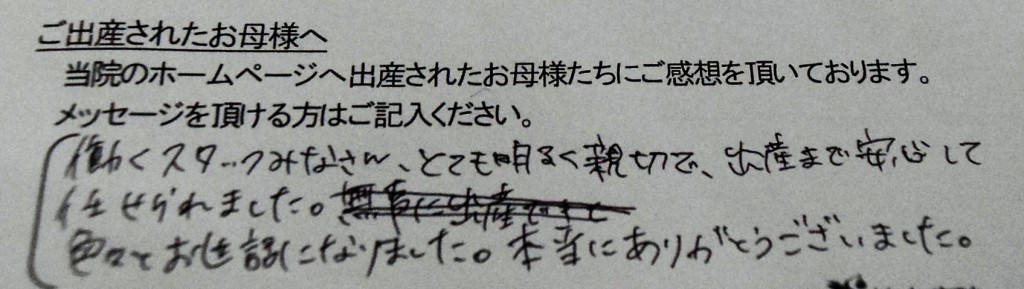 ご出産されたお母様へ
当院のホームページへ出産されたお母様たちにご感想を頂いております。
メッセージを頂ける方はご記入ください。
働くスタッフみなさん、とても明るく親切で、出産まで安心して
任せられました。無事に出産できまして
色々とお世話になりました。本当にありがとうございました。